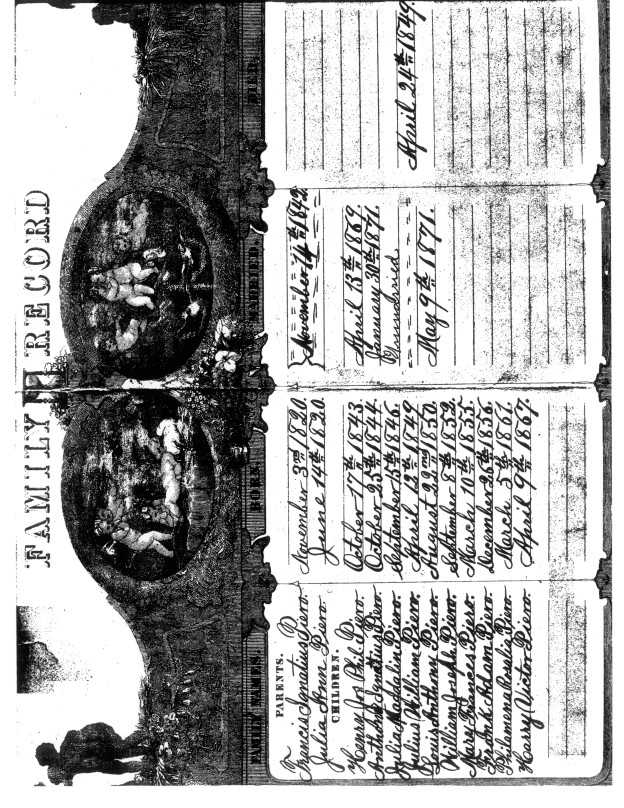 FAMILY RECORD
FAMILY NAMES. BORN. MARRIED. DIED.
PARENTS.
Francis Ignatius Piero. November 3rd 1820. November 14th 1842.
Julia Ann Piero. June 14th 1820.
CHILDREN.
Henry Jos Phil. P. October 17th 1843. April 13th 1869.
Anthony Ignatius Piero. October 25th 1844. January 30th 1871.
Julia Maddalin Piero. September 15th 1846. Unmarried.
Julius William Piero. April 12th 1849. April 24th 1849.
Louis Anthony Piero. August 22nd 1850. May 9th 1871.
William Joseph Piero. September 8th 1852.
Mary Frances Piero. March 10th 1855.
Frank Adam Piero. December 26th 1856.
Philamena Rosalia Piero. March 5th 1861.
Harry Victor Piero. April 9th 1867.